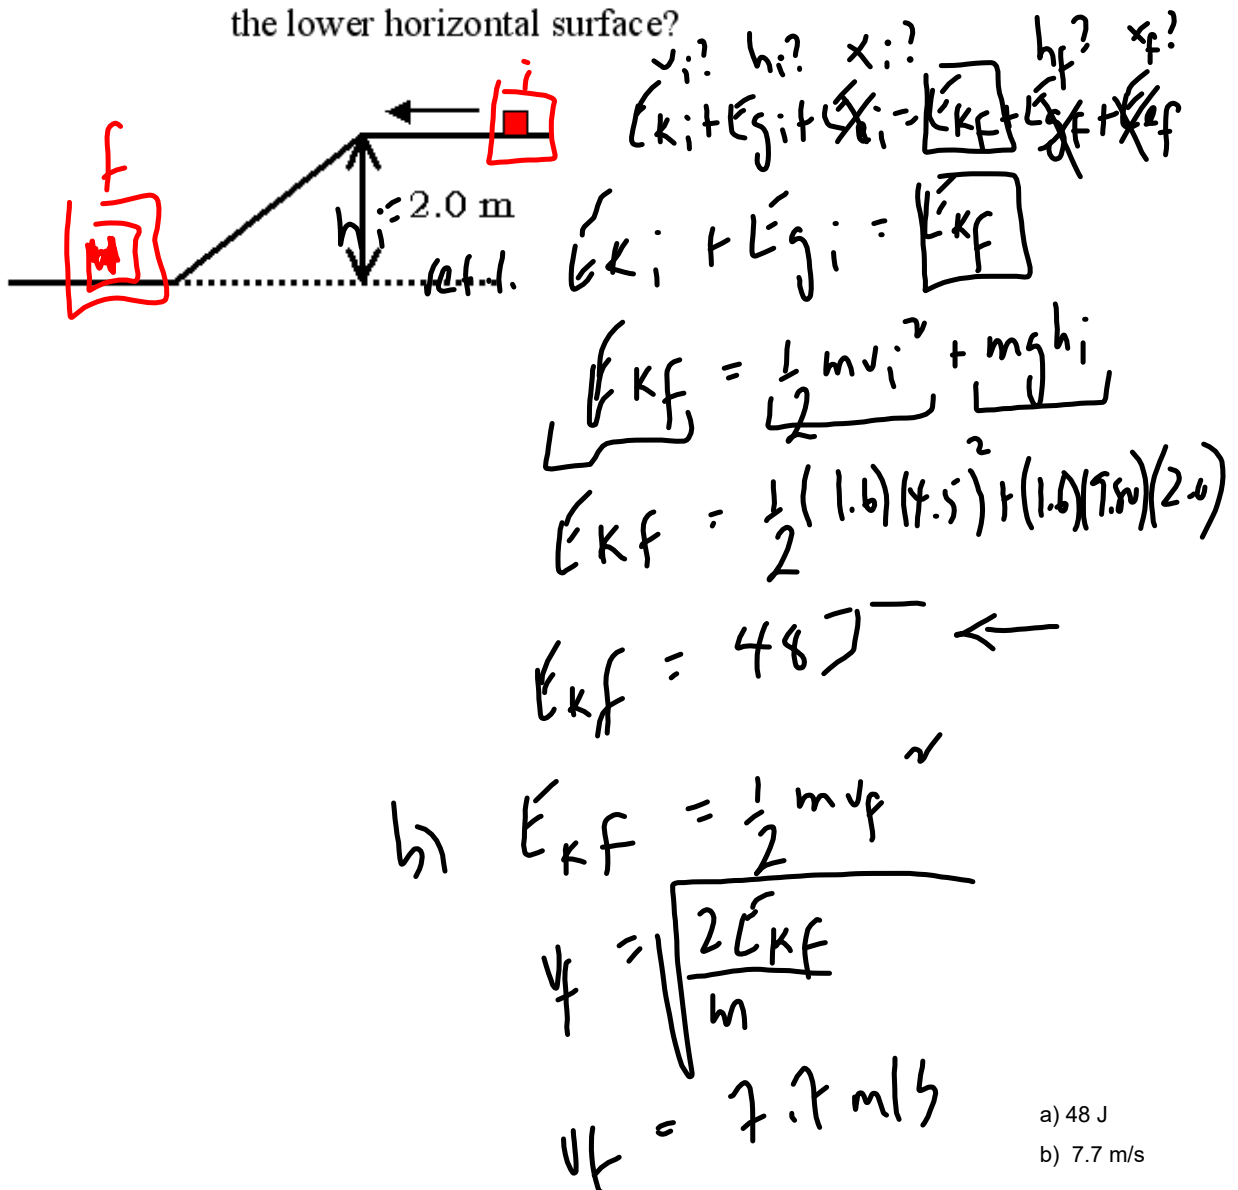 the lower horizontal surface?
vi? hi? xi? hf? xf?
Eki + Egi + Eei = Ekf + Egf + Eef
i
f
hi = 2.0 m
ref.l.
Eki + Egi = Ekf
Ekf = 1/2 mvi² + mghi
Ekf = 1/2 (1.6)(4.5)² + (1.6)(9.80)(2.0)
Ekf = 48 J
b) Ekf = 1/2 mvf²
vf = √(2Ekf/m)
vf = 7.7 m/s
a) 48 J
b) 7.7 m/s